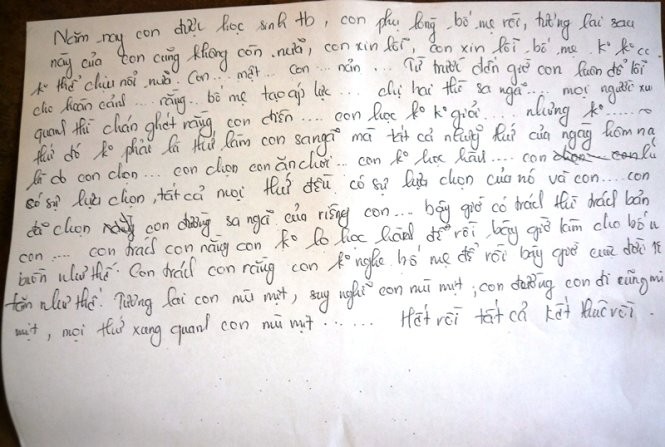 Năm nay con được học sinh tb, con phụ lòng bố mẹ rồi, tương lai sau
này của con cũng không còn nữa, con xin lỗi, con xin lỗi bố mẹ. k° k°
k° thể chịu nổi nữa. Con... mệt... con... nản... Từ trước đến giờ con luôn đổ lỗi
cho hoàn cảnh... rằng... bố mẹ tạo áp lực... chị hai thì sa ngã... mọi người xu
quanh thì chán ghét rằng con điên.... con học k° k° giỏi.... nhưng k°......
thứ đó k° phải là thứ làm con sa ngã mà tất cả những thứ của ngày hôm na
là do con chọn... con chọn con ăn chơi... con k° học hành.... con
có sự lựa chọn, tất cả mọi thứ đều có sự lựa chọn của nó và con.... con
đã chọn con đường sa ngã của riêng con... bây giờ có trách thì trách bản
con.... con trách con rằng con k° lo học hành để rồi bây giờ làm cho bố
buồn như thế. Con trách con rằng con k° nghe bố mẹ để rồi bây giờ cuộc đời
tàn như thế. Tương lai con mù mịt, suy nghĩ con mù mịt, con đường con đi cũng mù
mịt, mọi thứ xung quanh con mù mịt...... Hết rồi tất cả kết thúc rồi.